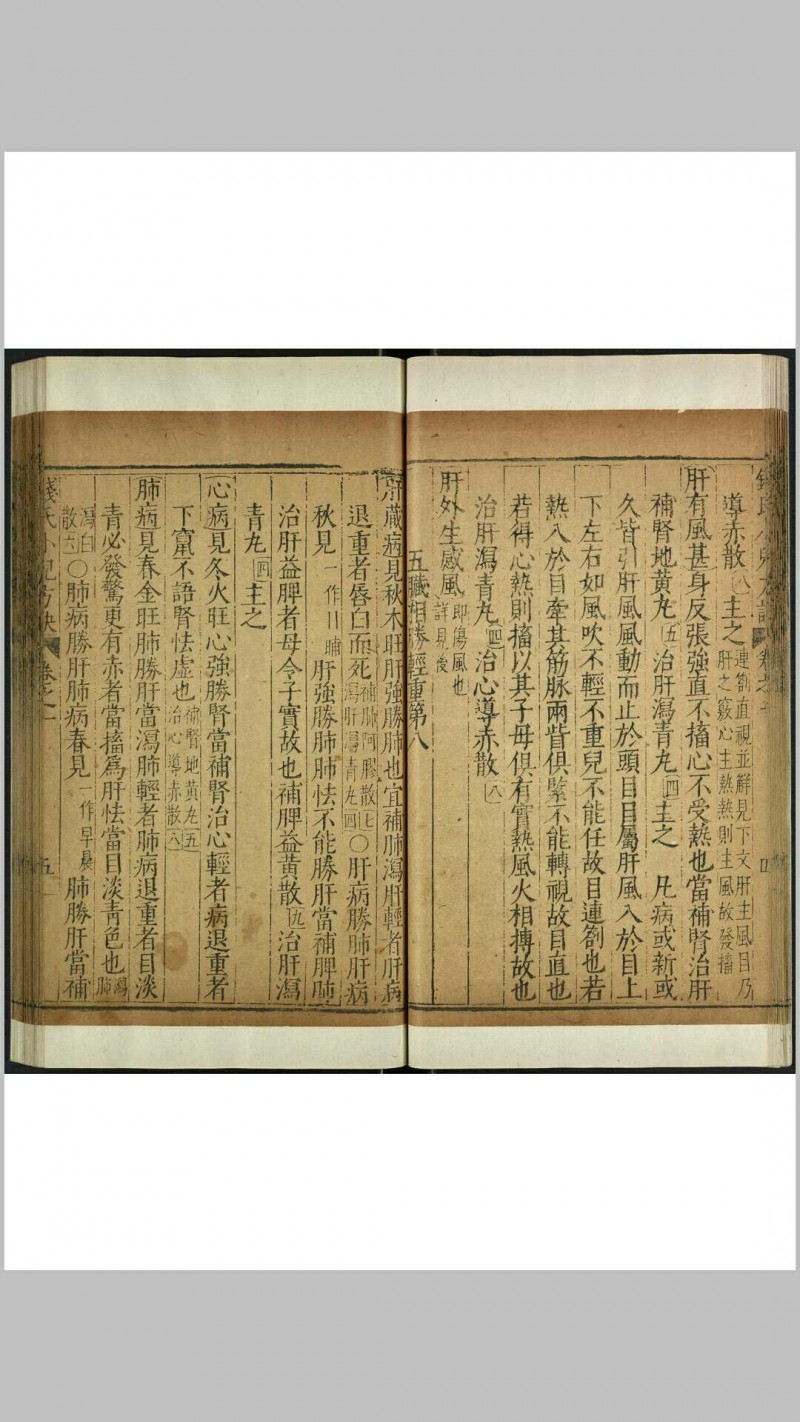 導赤散八主之連劄直視並觧見下文肝主風目乃肝之竅心主熱熱則主風故發搐
肝有風甚身反張強直不搐心不受熱也當補腎治肝
補腎地黄丸五治肝瀉青丸四主之 凡病或新或
久皆引肝風風動而止於頭目目屬肝風入於目上
下左右如風吹不輕不重兒不能任故目連劄也若
熱入於目牽其筋脉兩眥俱緊不能轉視故目直也
若得心熱則搐以其子母俱有實熱風火相搏故也
治肝瀉青丸四治心導赤散八
肝外生感風即傷風也詳見後
五臟相勝輕重第八
肝藏病見秋木旺肝強勝肺也宜補肺瀉肝輕者肝病
退重者唇白而死補肺阿膠散七瀉肝瀉青丸四〇肝病勝肺肝病
秋見一作日晡肝強勝肺肺怯不能勝肝當補脾肺
治肝益脾者母令子實故也補脾益黄散九治肝瀉
青丸四主之
心病見冬火旺心強勝腎當補腎治心輕者病退重者
下竄不語腎怯虛也補腎地黄丸五治心導赤散八
肺病見春金旺肺勝肝當瀉肺輕者肺病退重者目淡
青必發驚更有赤者當搐爲肝怯當目淡青色也瀉肺
瀉白散六〇肺病勝肝肺病春見一作早晨肺勝肝當補
錢氏小兒方訣 卷之一 五